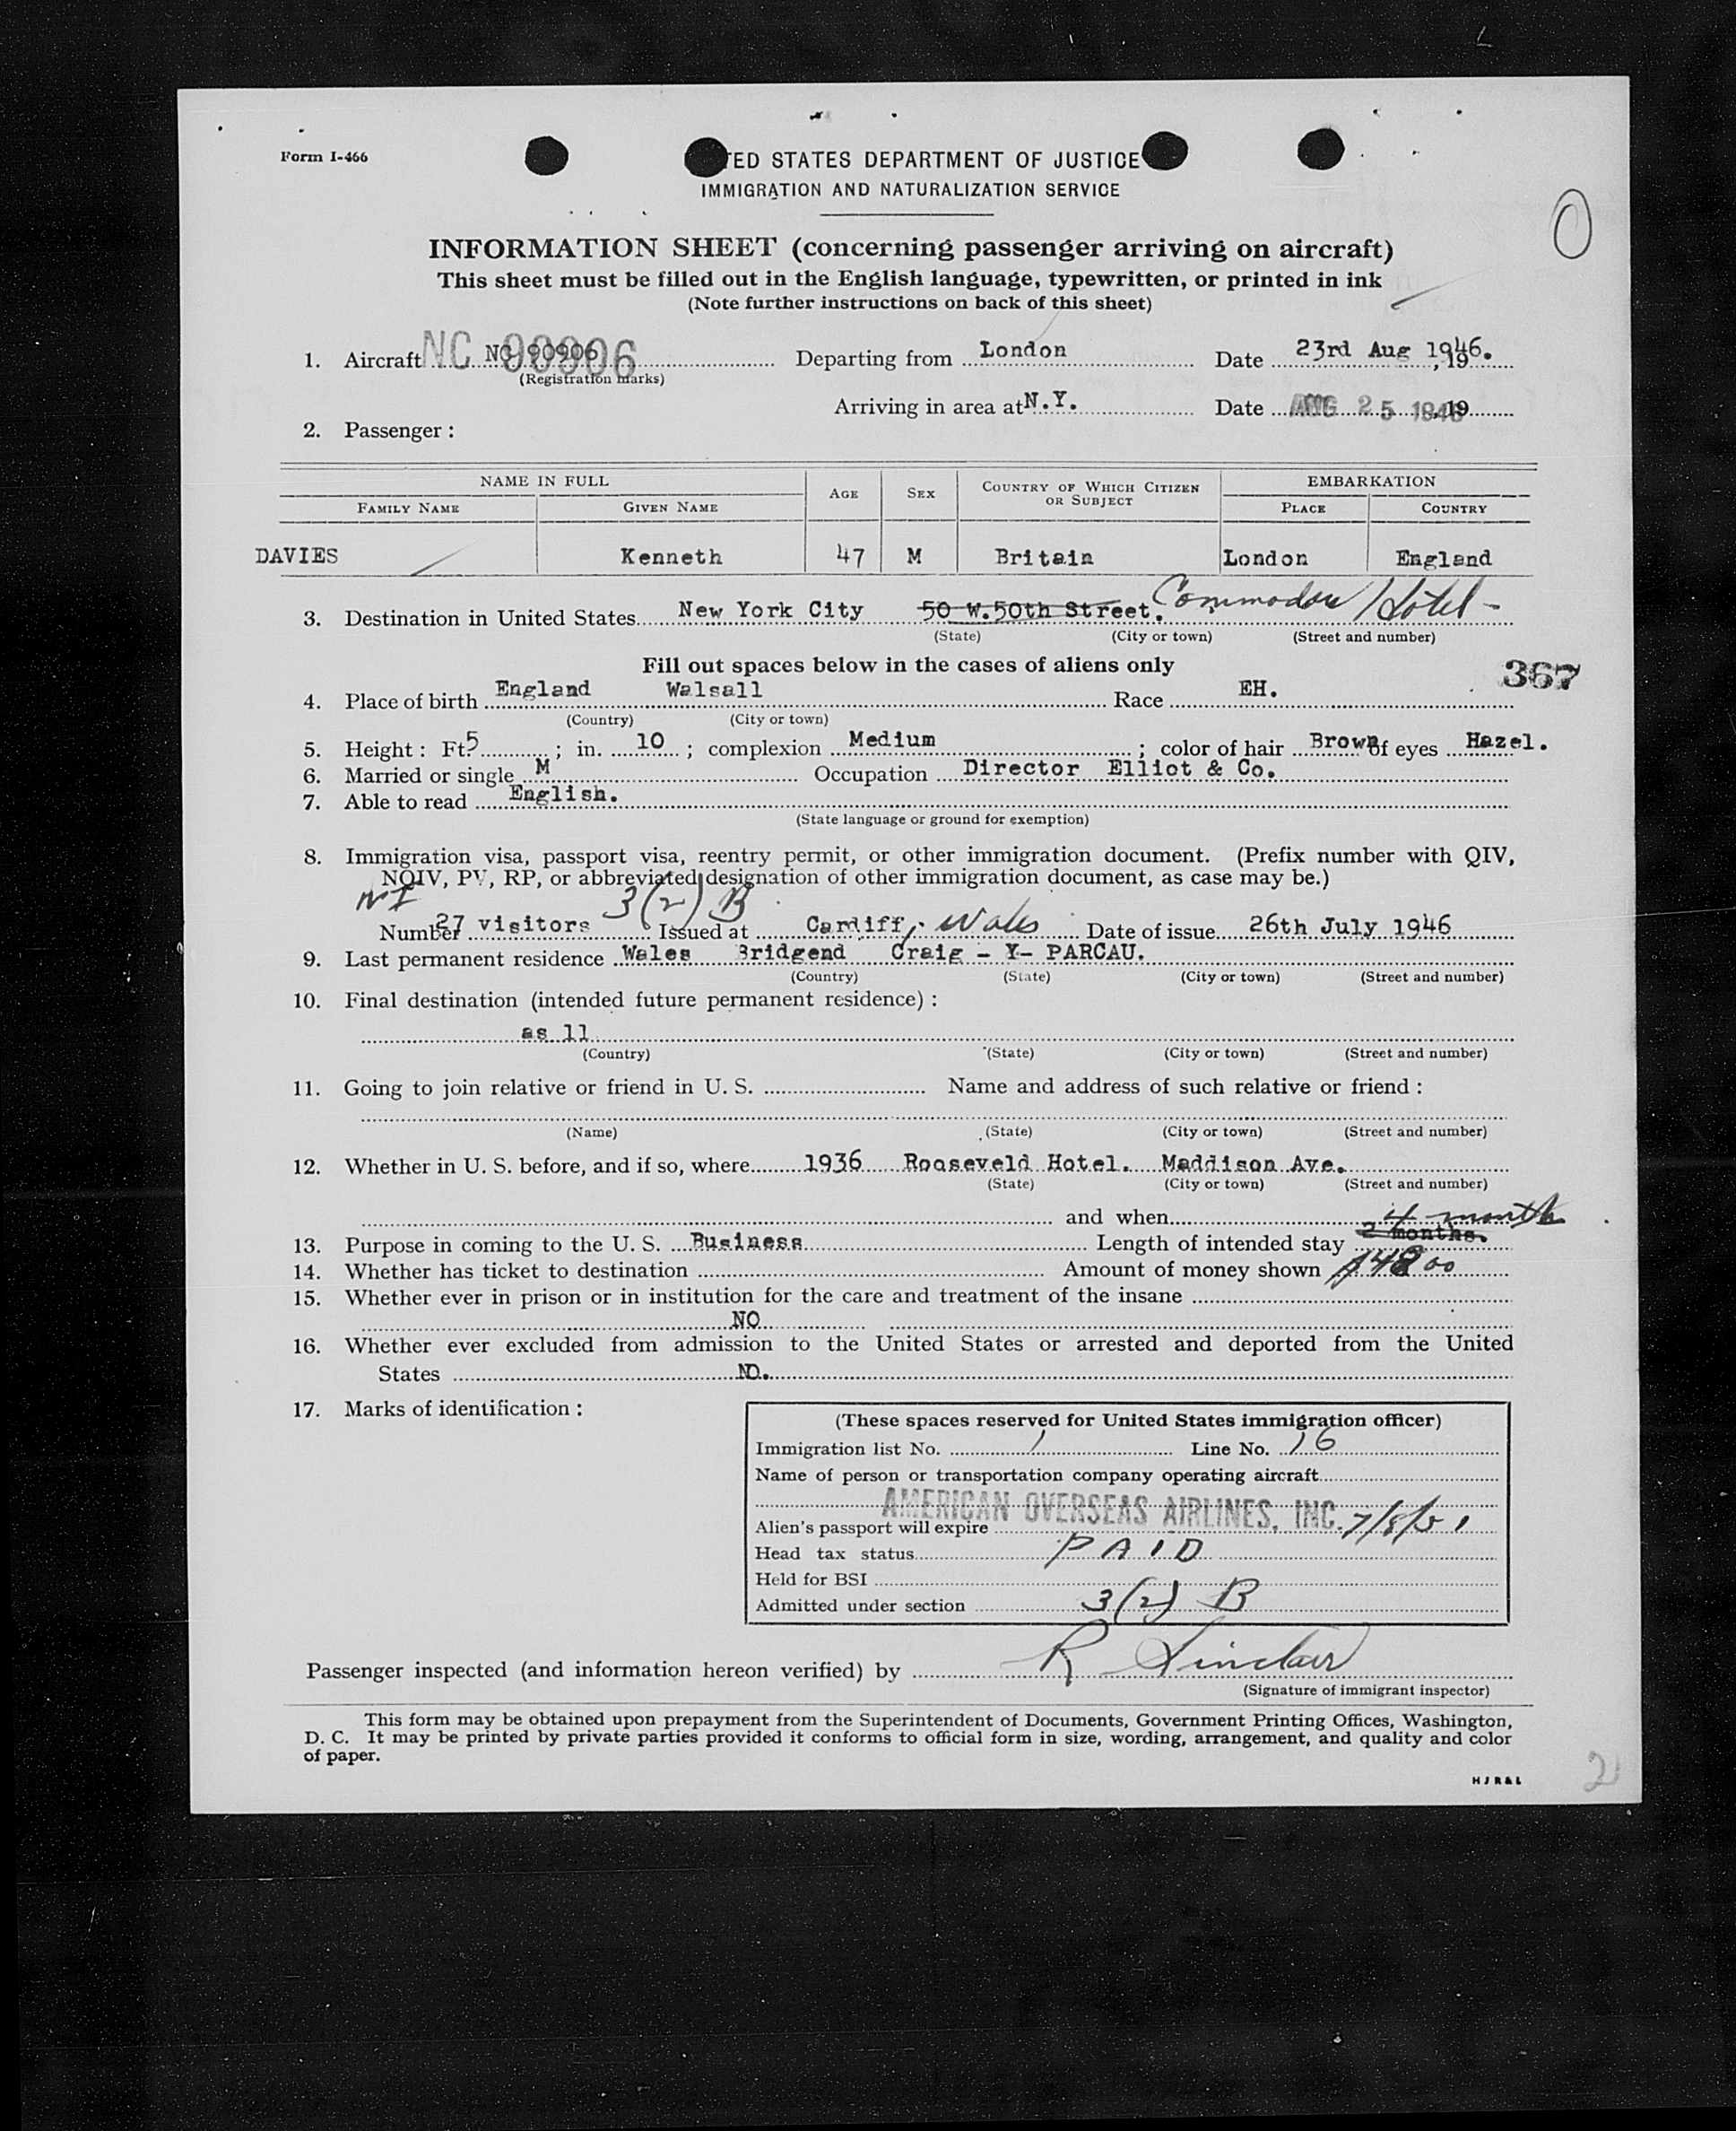 Form I-466
TED STATES DEPARTMENT OF JUSTICE
IMMIGRATION AND NATURALIZATION SERVICE
INFORMATION SHEET (concerning passenger arriving on aircraft)
This sheet must be filled out in the English language, typewritten, or printed in ink
(Note further instructions on back of this sheet)
1. Aircraft NC 90906 NC 90906 Departing from London Date 23rd Aug 1946. , 19
(Registration marks)
Arriving in area at N.Y. Date AUG 25 1946 , 19
2. Passenger :
NAME IN FULL AGE SEX COUNTRY OF WHICH CITIZEN OR SUBJECT EMBARKATION
FAMILY NAME GIVEN NAME PLACE COUNTRY
DAVIES Kenneth 47 M Britain London England
3. Destination in United States New York City 50 W.50th Street. Commodore Hotel -
(State) (City or town) (Street and number)
Fill out spaces below in the cases of aliens only
367
4. Place of birth England Walsall Race EH.
(Country) (City or town)
5. Height : Ft. 5 ; in. 10 ; complexion Medium ; color of hair Brown of eyes Hazel.
6. Married or single M Occupation Director Elliot & Co.
7. Able to read English.
(State language or ground for exemption)
8. Immigration visa, passport visa, reentry permit, or other immigration document. (Prefix number with QIV,
NQIV, PV, RP, or abbreviated designation of other immigration document, as case may be.)
3(2) B
Number 27 visitors Issued at Cardiff, Wales Date of issue 26th July 1946
9. Last permanent residence Wales Bridgend Craig - Y- PARCAU.
(Country) (State) (City or town) (Street and number)
10. Final destination (intended future permanent residence) :
as 11
(Country) (State) (City or town) (Street and number)
11. Going to join relative or friend in U. S. Name and address of such relative or friend :
(Name) (State) (City or town) (Street and number)
12. Whether in U. S. before, and if so, where 1936 Rooseveld Hotel. Maddison Ave.
(State) (City or town) (Street and number)
and when 4 month
13. Purpose in coming to the U. S. Business Length of intended stay 2 months.
14. Whether has ticket to destination Amount of money shown $48 00
15. Whether ever in prison or in institution for the care and treatment of the insane
NO
16. Whether ever excluded from admission to the United States or arrested and deported from the United
States NO.
17. Marks of identification :
(These spaces reserved for United States immigration officer)
Immigration list No. 1 Line No. 16
Name of person or transportation company operating aircraft
AMERICAN OVERSEAS AIRLINES, INC.
Alien's passport will expire 7/8/51
Head tax status PAID
Held for BSI
Admitted under section 3(2) B
Passenger inspected (and information hereon verified) by R Sinclair
(Signature of immigrant inspector)
This form may be obtained upon prepayment from the Superintendent of Documents, Government Printing Offices, Washington,
D. C. It may be printed by private parties provided it conforms to official form in size, wording, arrangement, and quality and color
of paper.
H J R & L
2